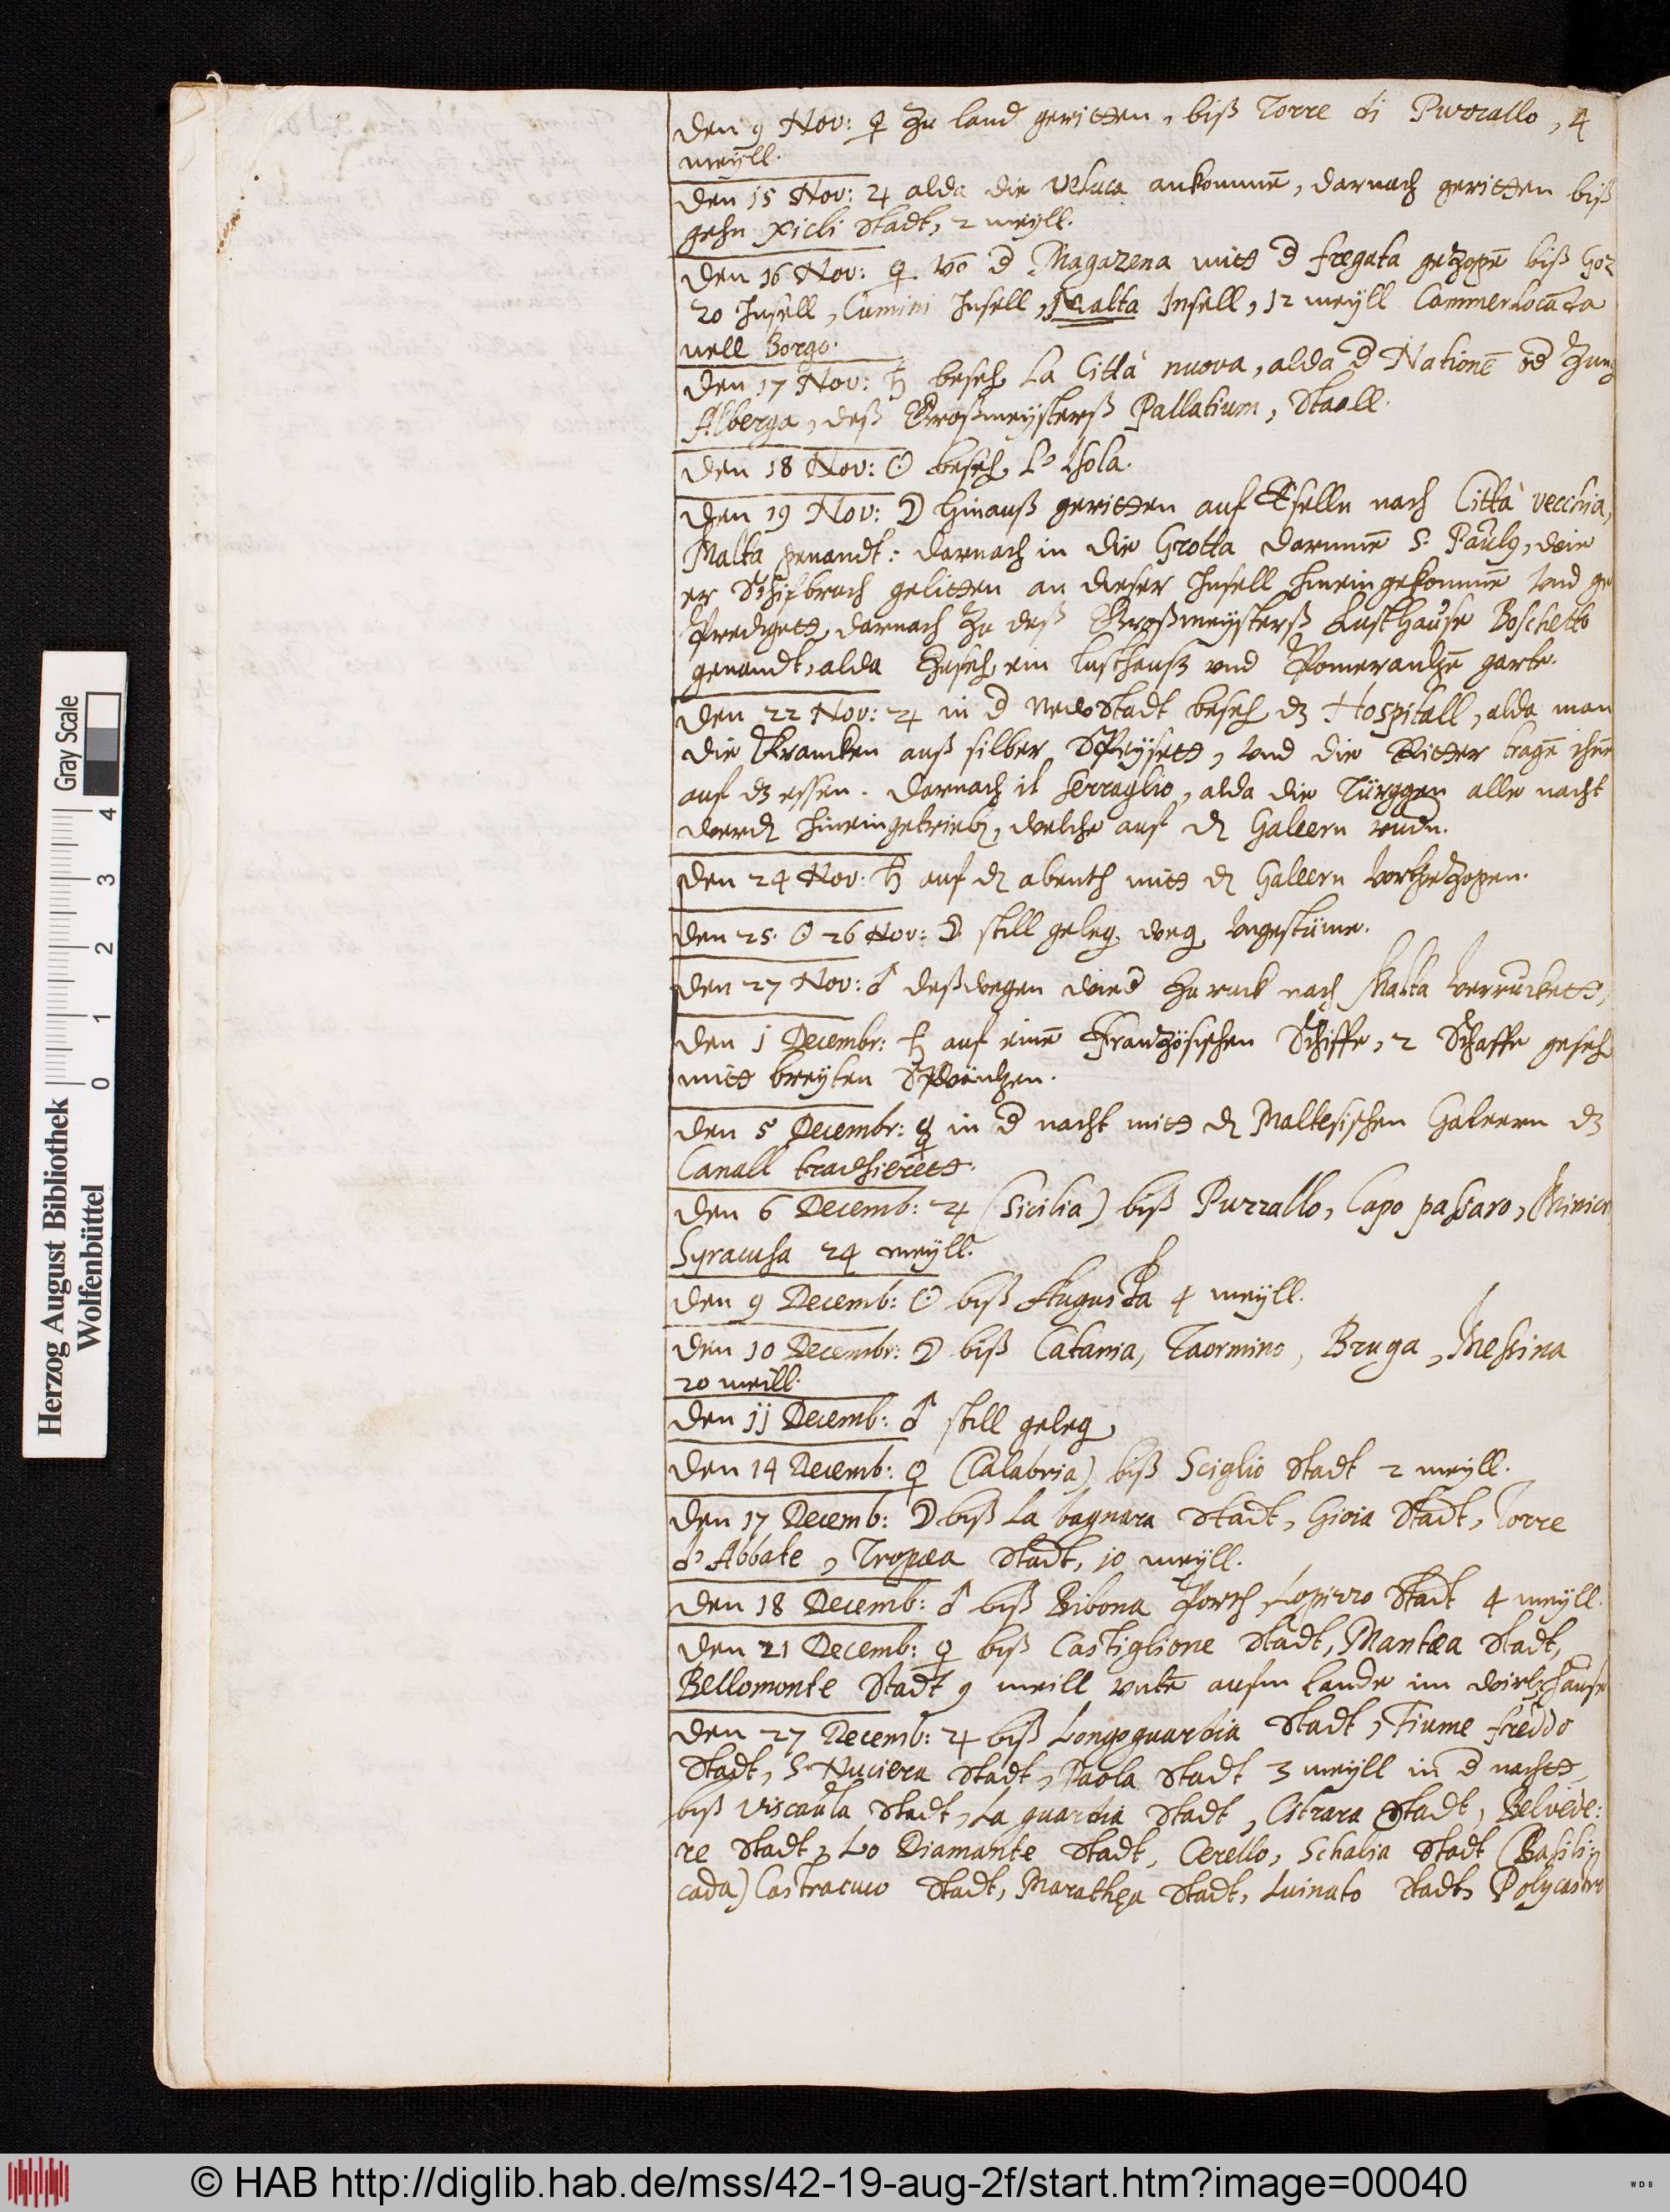 den 9 Nov: ♀ zu land geritten, biß Torre di Puzzallo, 4
meÿll.
den 15 Nov: ♃ alda die veluca ankommē, darnach geritten biß
gehn Xicli Stadt, 2 meÿll.
den 16 Nov: ♀. Vō d Magazena mitt d fregata gezogē biß Goz
zo Insell, Cumini Insell, Malta Insell, 12 meÿll Cammerlocāda
nell Borgo.
den 17 Nov: ♄ beseh. La Città nuova, alda d Nationē od Zung
Alberga, deß Großmeÿsterß Pallatium, Staall.
den 18 Nov: ☉ beseh. L' Isola.
den 19 Nov: ☽ hinauß geritten auf Eselln nach Città vecchia,
Malta genandt: darnach in die Grotta darinnē S. Paulꝰ, wie
er Schifbruch gelitten an dieser Insell hineingekommē und ge
Predigett, darnach zu deß Großmeÿsterß Lusthause Boschetto
genandt, alda beseh. ein lusthauß und Pomerantzē garte.
den 22 Nov: ♃ in d newStadt beseh. dz Hospitall, alda man
die Krancken auß silber SPeÿsett, und die Ritter tragē ihnē
auf dz essen. darnach il serraglio, alda die Türggen alle nacht
werdē hineingetriebē, welche auf dē Galeern rudn.
den 24 Nov: ♄ auf dē abenth mitt dē Galeern vortgezogen.
den 25. ☉ 26 Nov: ☽. still geleg. weg. Ungestüme.
den 27 Nov: ♂ deßwegen wied zuruck nach Malta verruckett,
den 1 Decembr: ♄ auf einē Frantzösischen Schiffe, 2 Schaffe geseh
mitt breÿten SCHwäntzen.
den 5 Decembr: ☿ in d nacht mitt dē Maltesischen Galeern dz
Canall trachsierett.
den 6 Decemb: ♃ (Sicilia) biß Puzzallo, Capo passaro,
Syracusa 24 meÿll.
den 9 Decemb: ☉ biß Augusta 4 meÿll.
den 10 Decembr: ☽ biß Catania, Taormino, Bruga, Messina
20 meill.
den 11 Decemb: ♂ still geleg.
den 14 Decemb: ♀ (Calabria) biß Sciglio Stadt 2 meÿll.
den 17 Decemb: ☽ biß La bagnara Stadt, Gioia Stadt, Torre
d' Abbate, Tropæa Stadt, 10 meÿll.
den 18 Decemb: ♂ biß Bibona Porth, Lopizzo Stadt 4 meÿll.
den 21 Decemb: ♀ biß Castiglione Stadt, Mantæa Stadt,
Bellomonte Stadt 9 meill untē aufm Lande im wirtshause
den 27 Decemb: ♃ biß Longoguardia Stadt, Fiume freddo
Stadt, S. Nuciera Stadt, Paola Stadt 3 meÿll in d nachtt
biß Viscauda Stadt, La guardia Stadt, Citrara Stadt, Belvede:
re Stadt, Lo Diamante Stadt, Cerello, Schalia Stadt (Basili:
cada) Castracuco Stadt, Marathea Stadt, Luinato Stadt, Polycastro
Herzog August Bibliothek
Wolfenbüttel
0 1 2 3 4
Gray Scale
© HAB http://diglib.hab.de/mss/42-19-aug-2f/start.htm?image=00040
WDB